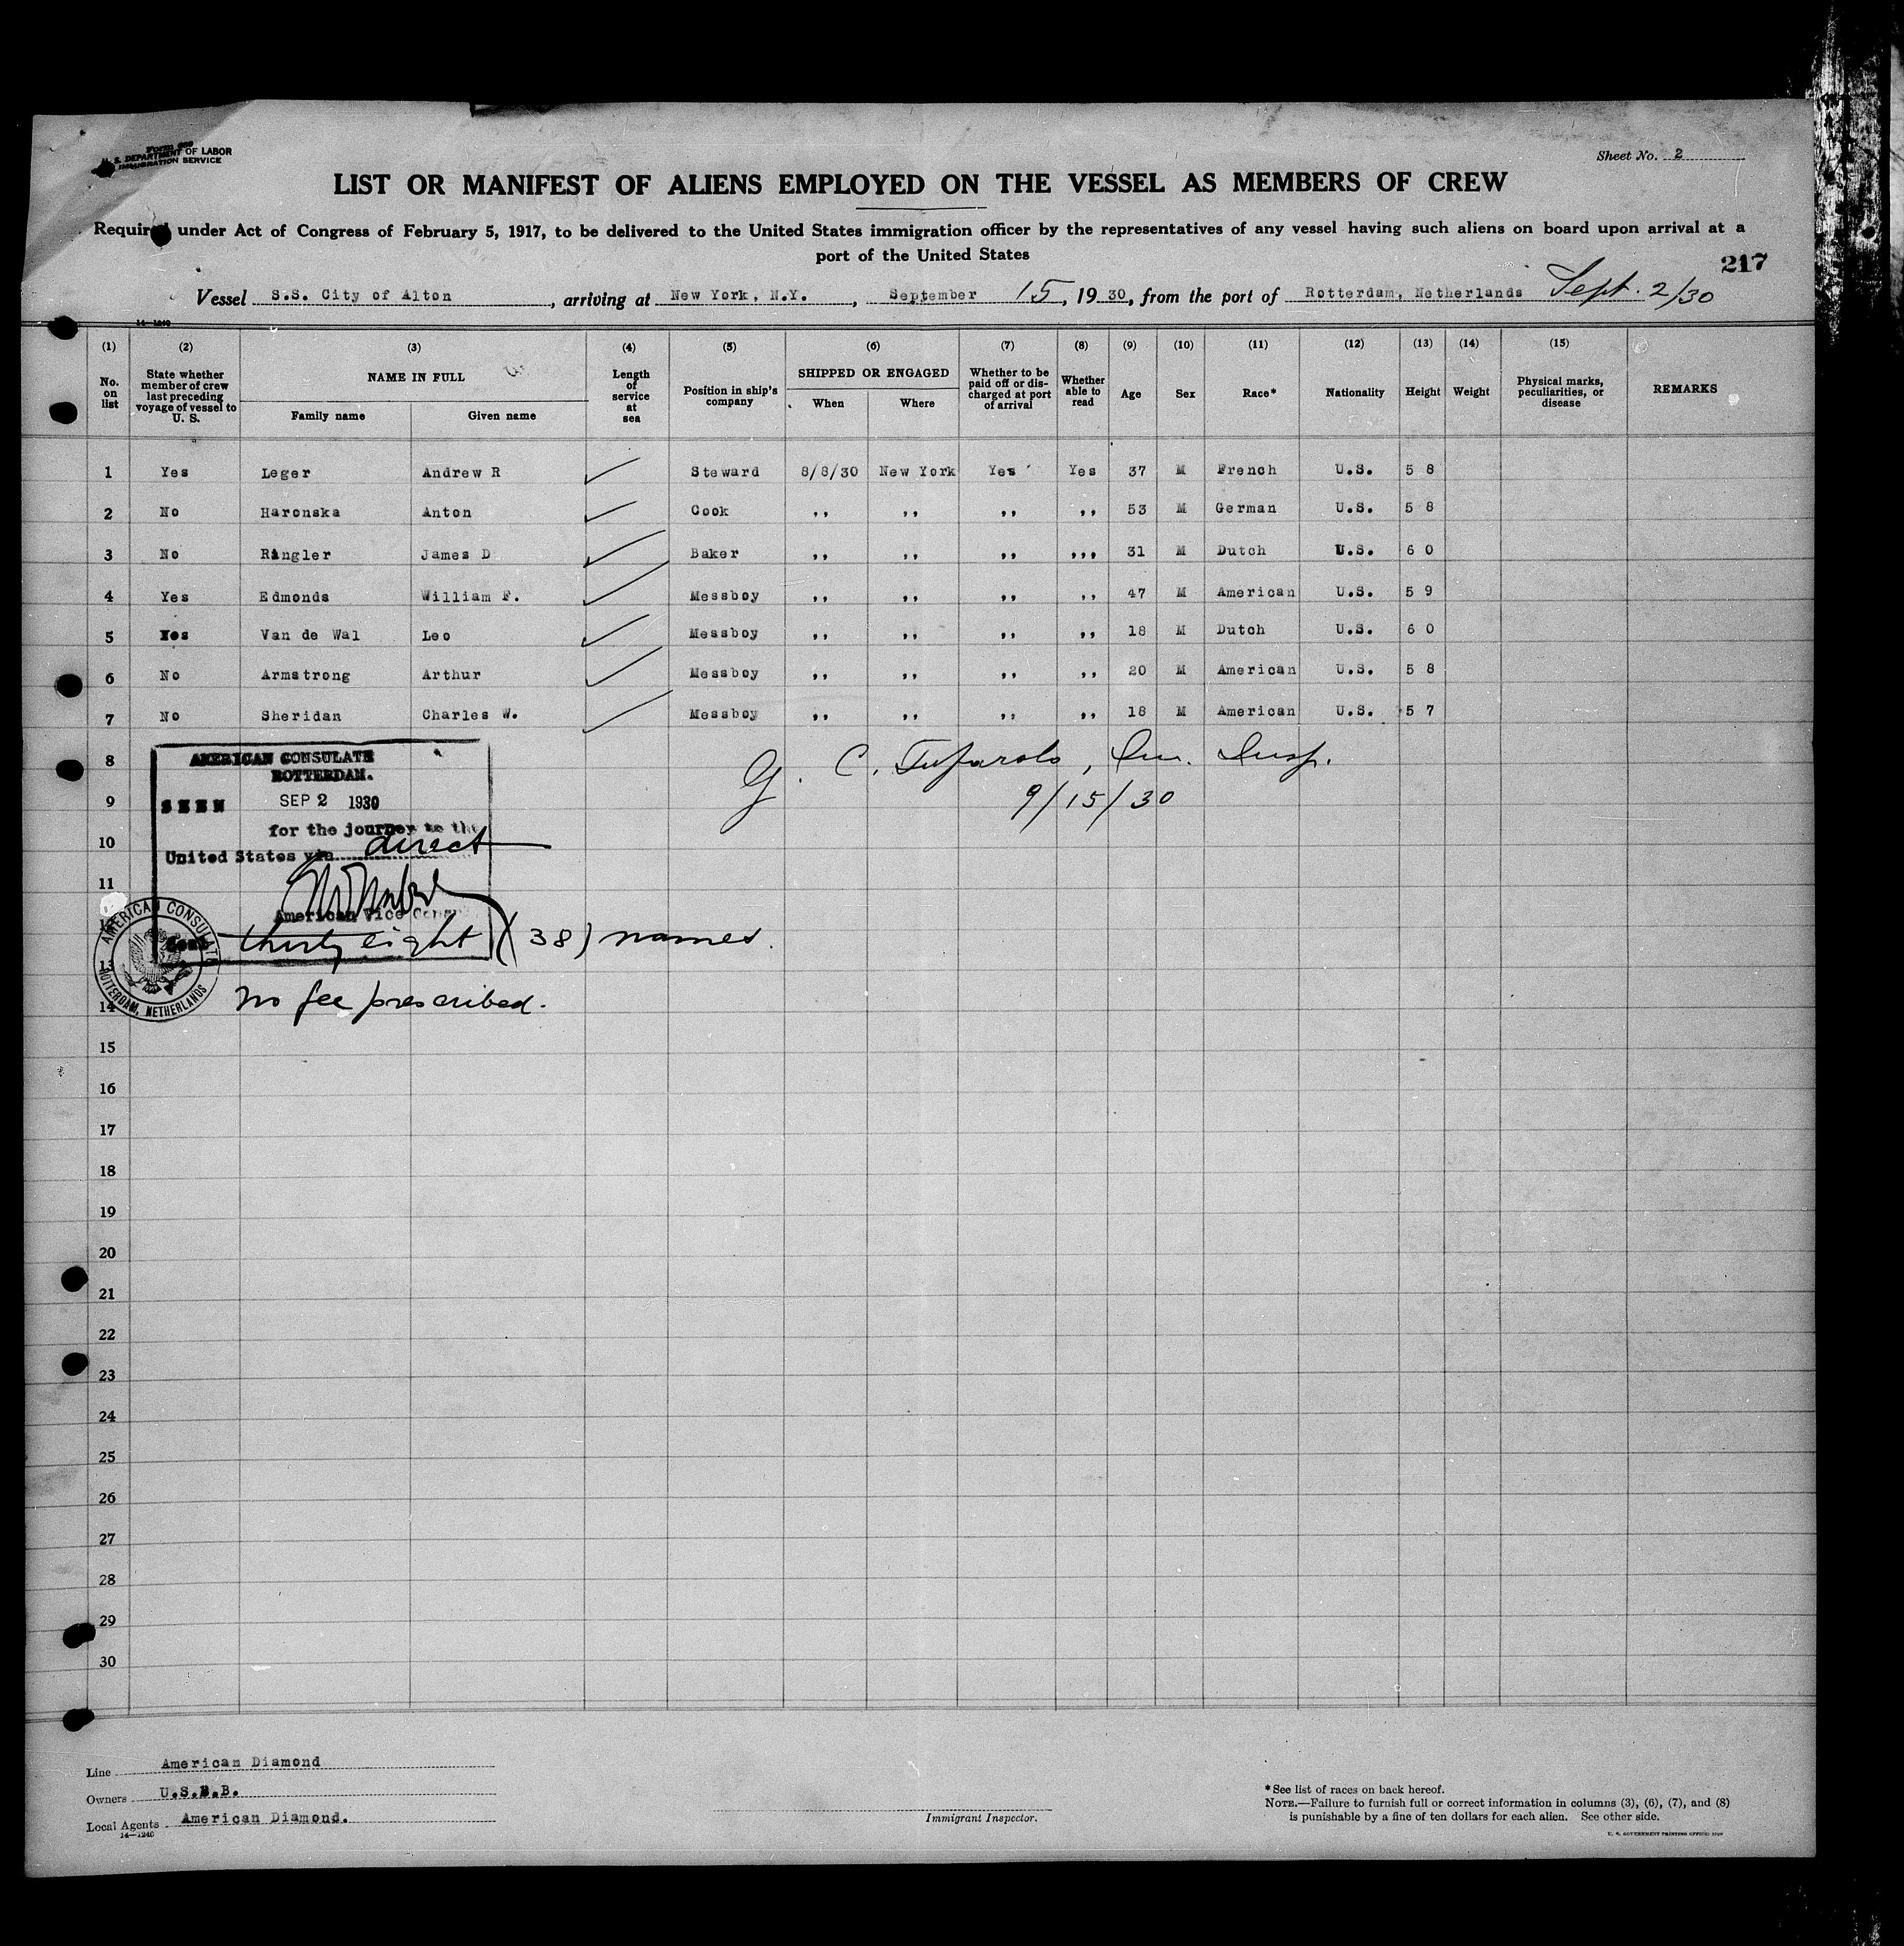 Form 689
U. S. DEPARTMENT OF LABOR
IMMIGRATION SERVICE
Sheet No. 2
LIST OR MANIFEST OF ALIENS EMPLOYED ON THE VESSEL AS MEMBERS OF CREW
Required under Act of Congress of February 5, 1917, to be delivered to the United States immigration officer by the representatives of any vessel having such aliens on board upon arrival at a
port of the United States
217
Vessel S.S. City of Alton, arriving at New York, N.Y., September 15, 1930, from the port of Rotterdam, Netherlands Sept. 2/30
14—1240
(1) (2) (3) (4) (5) (6) (7) (8) (9) (10) (11) (12) (13) (14) (15)
No. on list
State whether member of crew last preceding voyage of vessel to U. S.
NAME IN FULL
Family name Given name
Length of service at sea
Position in ship's company
SHIPPED OR ENGAGED
When Where
Whether to be paid off or discharged at port of arrival
Whether able to read
Age
Sex
Race*
Nationality
Height
Weight
Physical marks, peculiarities, or disease
REMARKS
1 Yes Leger Andrew R Steward 8/8/30 New York Yes Yes 37 M French U.S. 5 8
2 No Haronska Anton Cook ,, ,, ,, ,, 53 M German U.S. 5 8
3 No Ringler James D Baker ,, ,, ,, ,,, 31 M Dutch U.S. 6 0
4 Yes Edmonds William F. Messboy ,, ,, ,, ,, 47 M American U.S. 5 9
5 Yes Van de Wal Leo Messboy ,, ,, ,, ,, 18 M Dutch U.S. 6 0
6 No Armstrong Arthur Messboy ,, ,, ,, ,, 20 M American U.S. 5 8
7 No Sheridan Charles W. Messboy ,, ,, ,, ,, 18 M American U.S. 5 7
8
AMERICAN CONSULATE
ROTTERDAM.
G. C. Imm. Insp.
9
SEEN SEP 2 1930
9/15/30
for the journey to the
10
United States via direct
11
American Vice Consul
12
thirty eight (38) names.
13
No fee prescribed.
14
AMERICAN CONSULATE
ROTTERDAM, NETHERLANDS
15
16
17
18
19
20
21
22
23
24
25
26
27
28
29
30
Line American Diamond
Owners U.S.B.B.
Local Agents American Diamond.
14—1240
Immigrant Inspector.
*See list of races on back hereof.
NOTE.—Failure to furnish full or correct information in columns (3), (6), (7), and (8)
is punishable by a fine of ten dollars for each alien. See other side.
U. S. GOVERNMENT PRINTING OFFICE: 1929